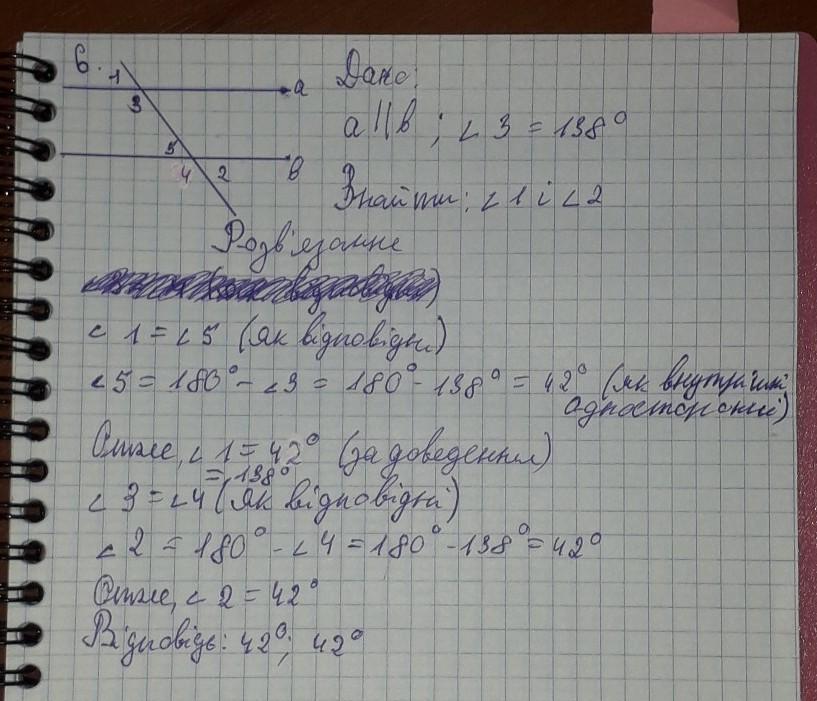 6.
1
a
3
5
b
4 2
Дано:
a||b ; ∠3 = 138°
Знайти: ∠1 і ∠2
Розв'язання
∠1 = ∠5 (як відповідні)
∠5 = 180° - ∠3 = 180° - 138° = 42° (як внутрішні
односторонні)
Отже, ∠1 = 42° (за доведенням)
= 138°
∠3 = ∠4 (як відповідні)
∠2 = 180° - ∠4 = 180° - 138° = 42°
Отже, ∠2 = 42°
Відповідь: 42°; 42°